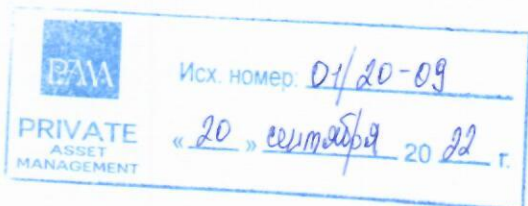 PAM
PRIVATE
ASSET
MANAGEMENT
Исх. номер: 01/20-09
« 20 » сентября 20 22 г.